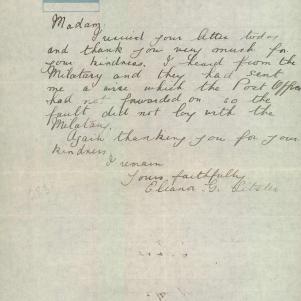 Madam
I received your letter today
and thank you very much for
your kindness. I heard from the
Melatary and they had sent
me a wire which the Post Office
had not forwarded on so the
fault did not lay with the
Melatary.
Again thanking you for your
kindness
I remain
Yours faithfully
Eleanor G.